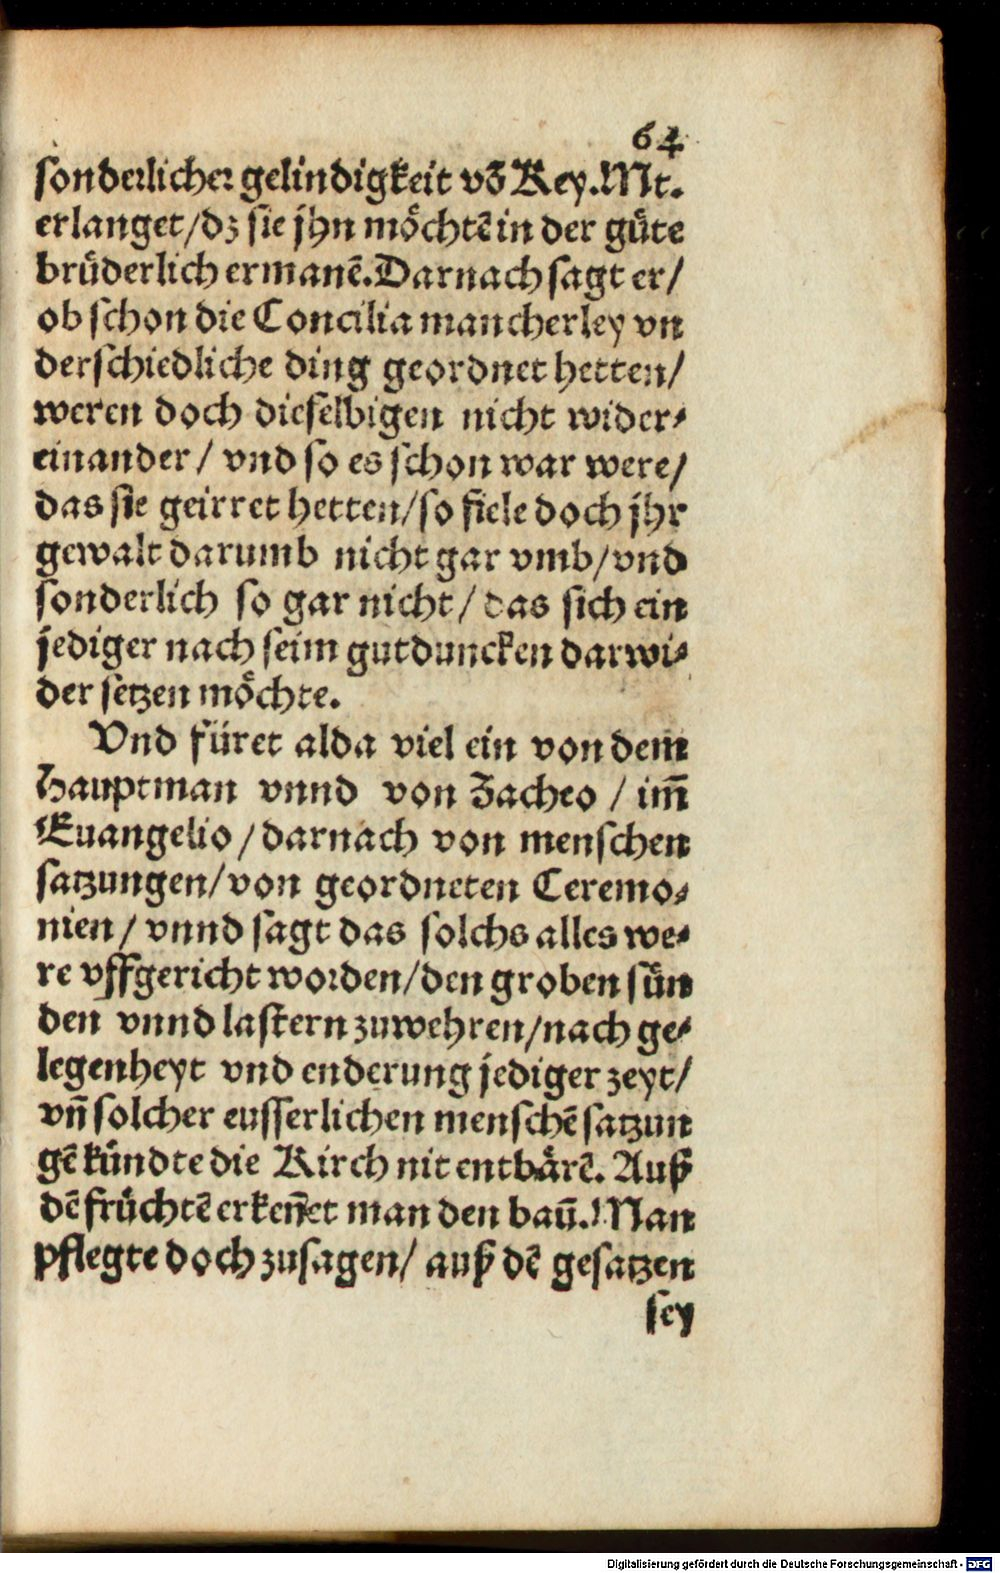 64
sonderlicher gelindigkeit võ Key. Mt.
erlanget/ dz sie jhn möchtẽ in der güte
brüderlich ermanẽ. Darnach sagt er/
ob schon die Concilia mancherley vn
derschiedliche ding geordnet hetten/
weren doch dieselbigen nicht wider⸗
einander/ vnd so es schon war were/
das sie geirret hetten/ so fiele doch jhr
gewalt darumb nicht gar vmb/ vnd
sonderlich so gar nicht/ das sich ein
jediger nach seim gutduncken darwi⸗
der setzen möchte.
Vnd füret alda viel ein von dem
Hauptman vnnd von Zacheo / im̃
Euangelio/ darnach von menschen
satzungen/ von geordneten Ceremo⸗
nien/ vnnd sagt das solchs alles we⸗
re vffgericht worden/ den groben sün
den vnnd lastern zuwehren/ nach ge⸗
legenheyt vnd enderung jediger zeyt/
vñ solcher eusserlichen menschẽ satzun
gẽ kündte die Kirch nit entbärẽ. Auß
dẽ früchtẽ erkeñet man den baũ. Man
pflegte doch zusagen/ auß dẽ gesatzen
sey
Digitalisierung gefördert durch die Deutsche Forschungsgemeinschaft - DFG